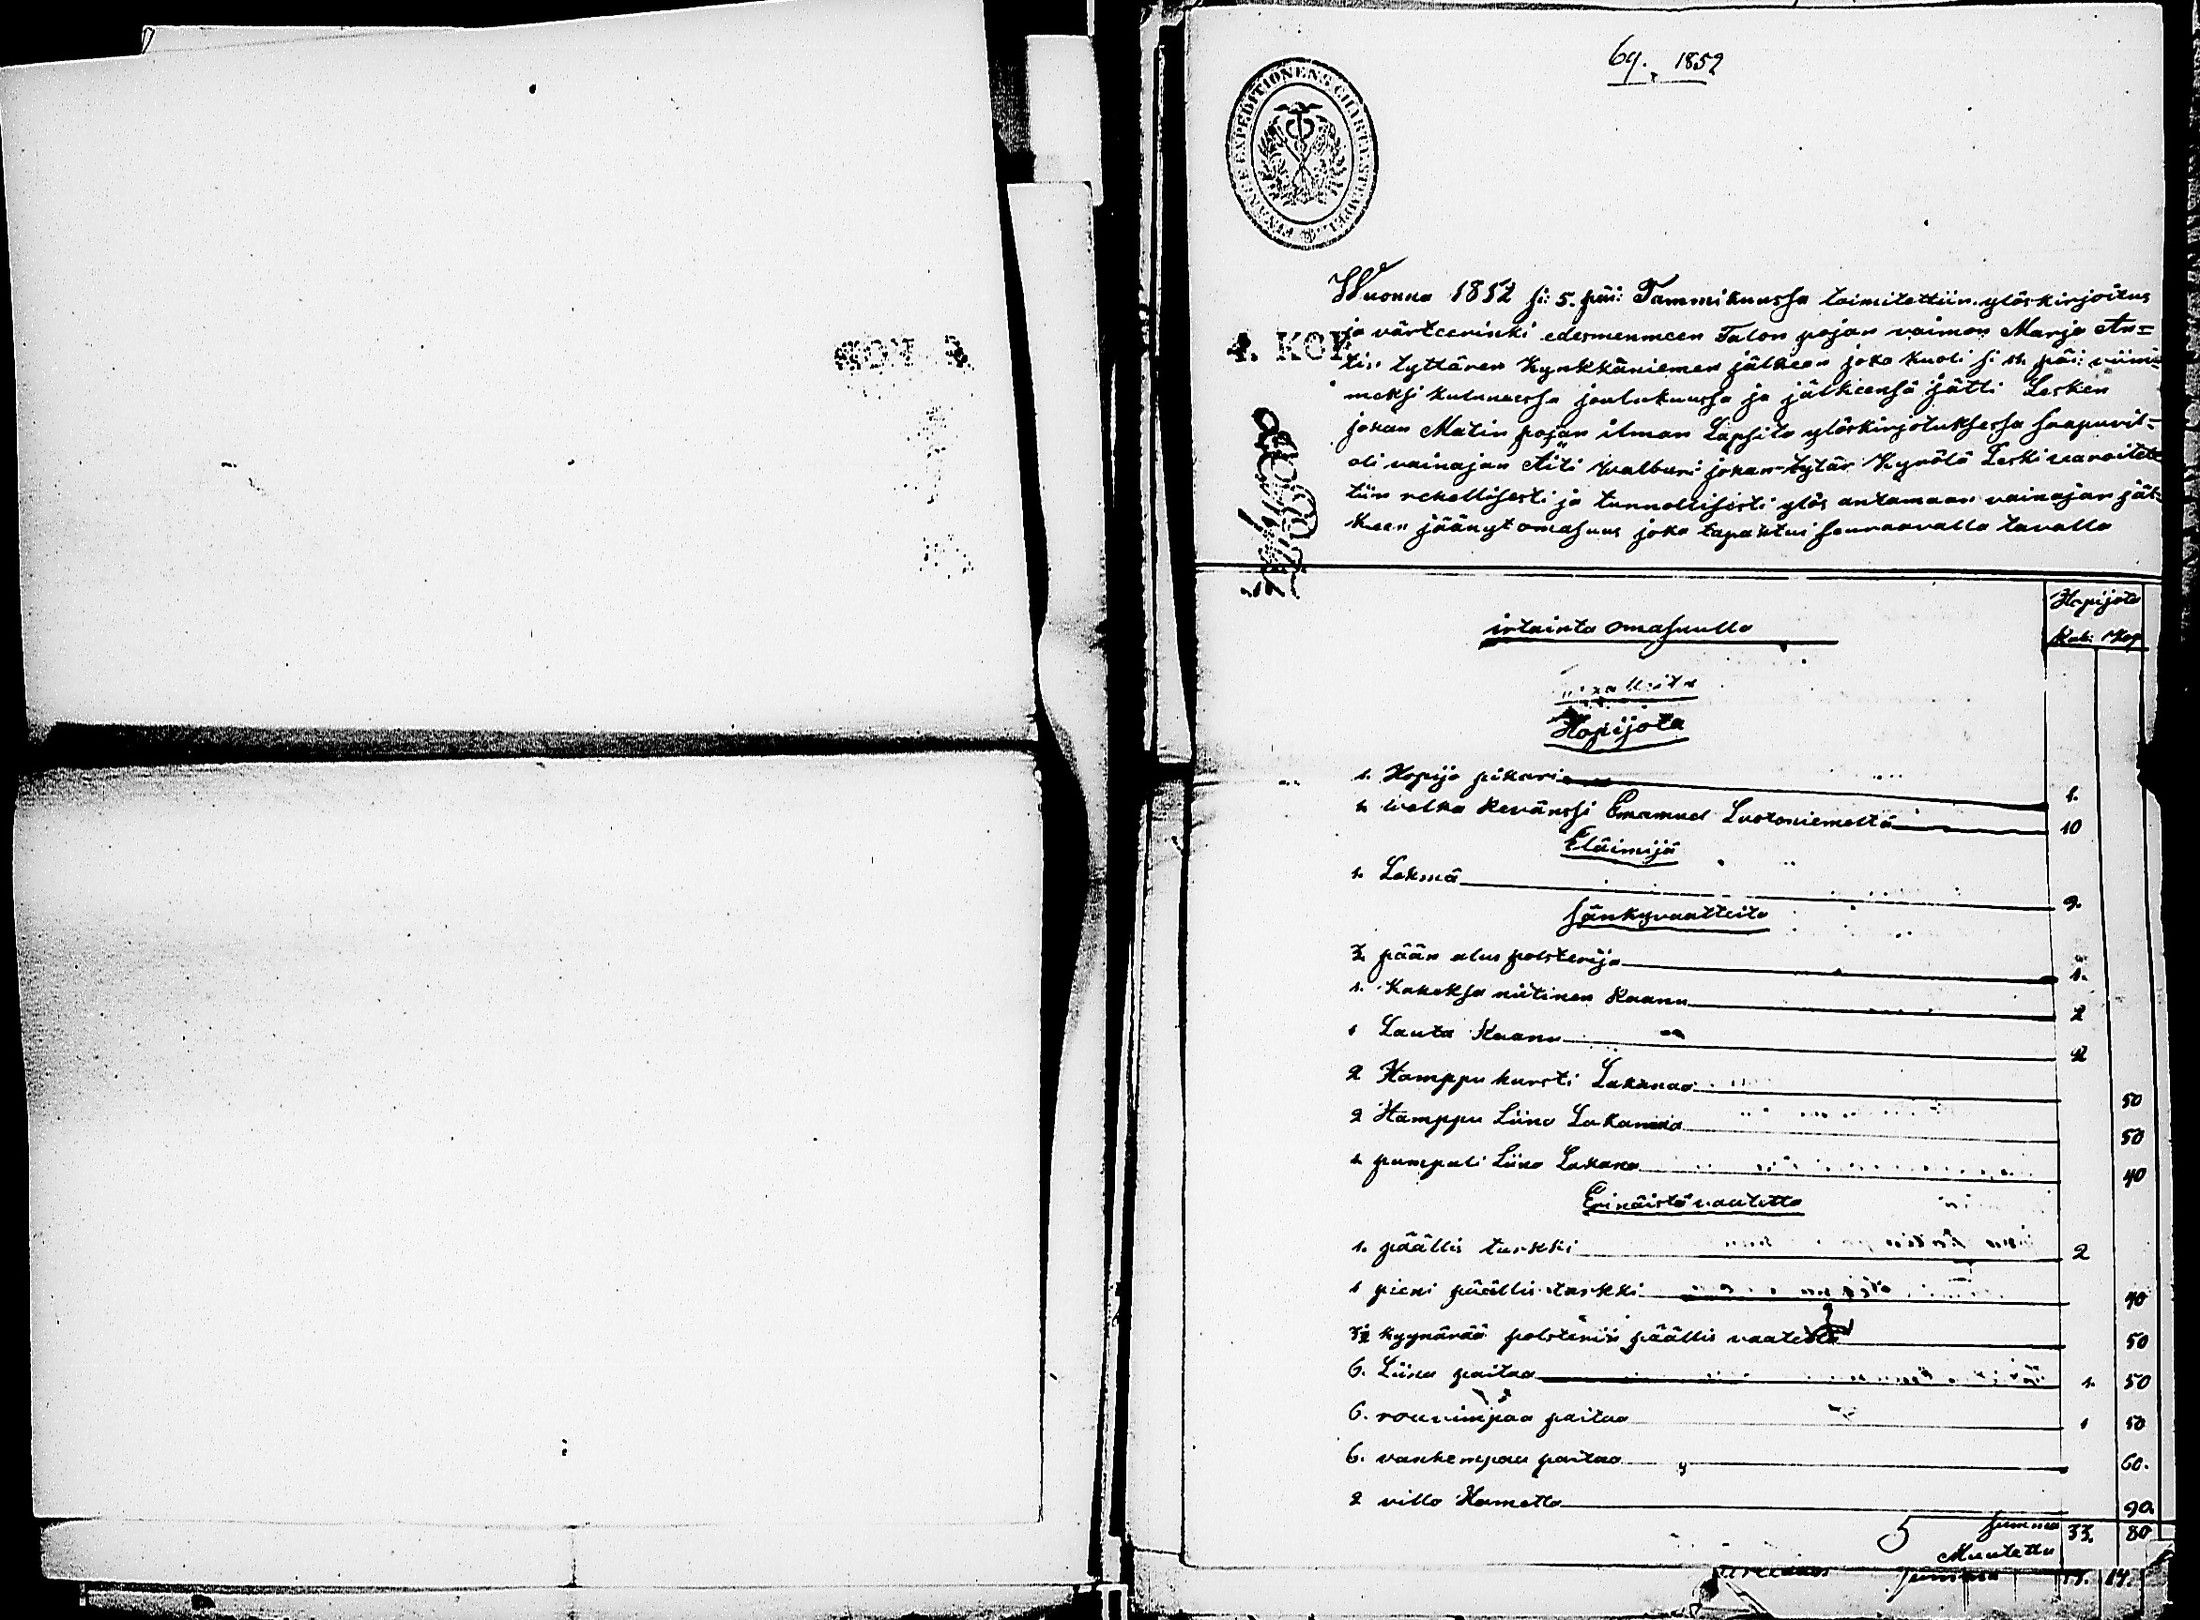 69. 1852
FINANCE EXPEDITIONENS CHARTÆ STEMPEL.
4. KOP.
Wuonna 1852 si: 5. päi: Tammikuussa toimitettiin ylöskirjoitus
ja värteerinki edesmenneen Talon pojan vaimon Marja An=
tin tyttären Kynkkäniemen jälkeen joka kuoli si 11. päi: viimi=
meksi kuluneessa joulukuussa ja jälkeensä jätti Lesken
johan Matin pojan ilman Lapsita ylöskirjotuksessa saapuvil=
oli vainajan Äiti Walburi johan tytär Kyrölä Leski varoitet
tiin rehellisesti ja tunnollisesti ylös antamaan vainajan jäl=
keen jäänyt omasuus joka tapahtui seuraavalla tavalla
Hopijata
Rub: Kop
irtainta omasuutta
Hopijota
1. Hopija pikari 1.
1. welka Revänssi Emanuel Luotoniemeltä 10
Eläimijä
1. Lehmä 9.
sänkyvaatteita
3 pään alus polsterija 1.
1. Kaheksa niitinen Raanu 2
1 Lauta Raanu 2
2 Hamppu hursti Lakanaa 50
2 Hamppu Liina Lakanaa 50
1. pumpuli Liina Lakana 40
Erinäistä vaatetta
1. päällis turkki 2
1 pieni päällis turkki 40
3½ kyynärää polsterin päällis vaatetta 50
6. Liina paitaa 1. 50
6. rouvimpaa paitaa 1 50
6. vanhempaa paitaa 60.
2 villa Hametta 90.
summa 33. 80
Muutettu